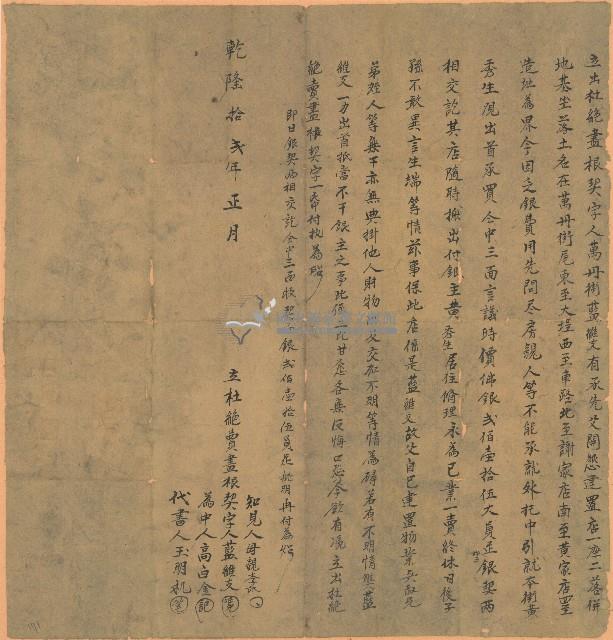 立出杜絕盡根契字人萬丹街藍維文有承先父開墾建置店一座二落併
地基坐落土名在萬丹街尾東至大埕西至車路北至謝家店南至黃家店四
造址為界今因乏銀費用先問尽房親人等不能承就外托中引就本街黃
秀生現出首承買仝中三面言議時價佛銀弍佰壹拾伍大員正銀契兩
相交訖其店隨時搬出付銀主黃秀生居住修理永為己業一賣終休日後子
孫不敢異言生端等情茲事保此店係是藍維文故父自己建置物業與叔兄
弟姪人等無干亦無典掛他人財物以及交加不明等情為碍若有不明情弊藍
維文一力出首抵當不干銀主之事此係二比甘愿各無反悔口恐今欲有憑立出杜絕
絕賣盡根契字一帋付执為炤
即日銀契兩相交訖仝中三面收契面銀弍佰壹拾伍員足訖明再付為炤
乾隆拾弍年正月
立杜絕賣盡根契字人藍維文
知見人母親李氏
為中人高白金記
代書人王朋机
191